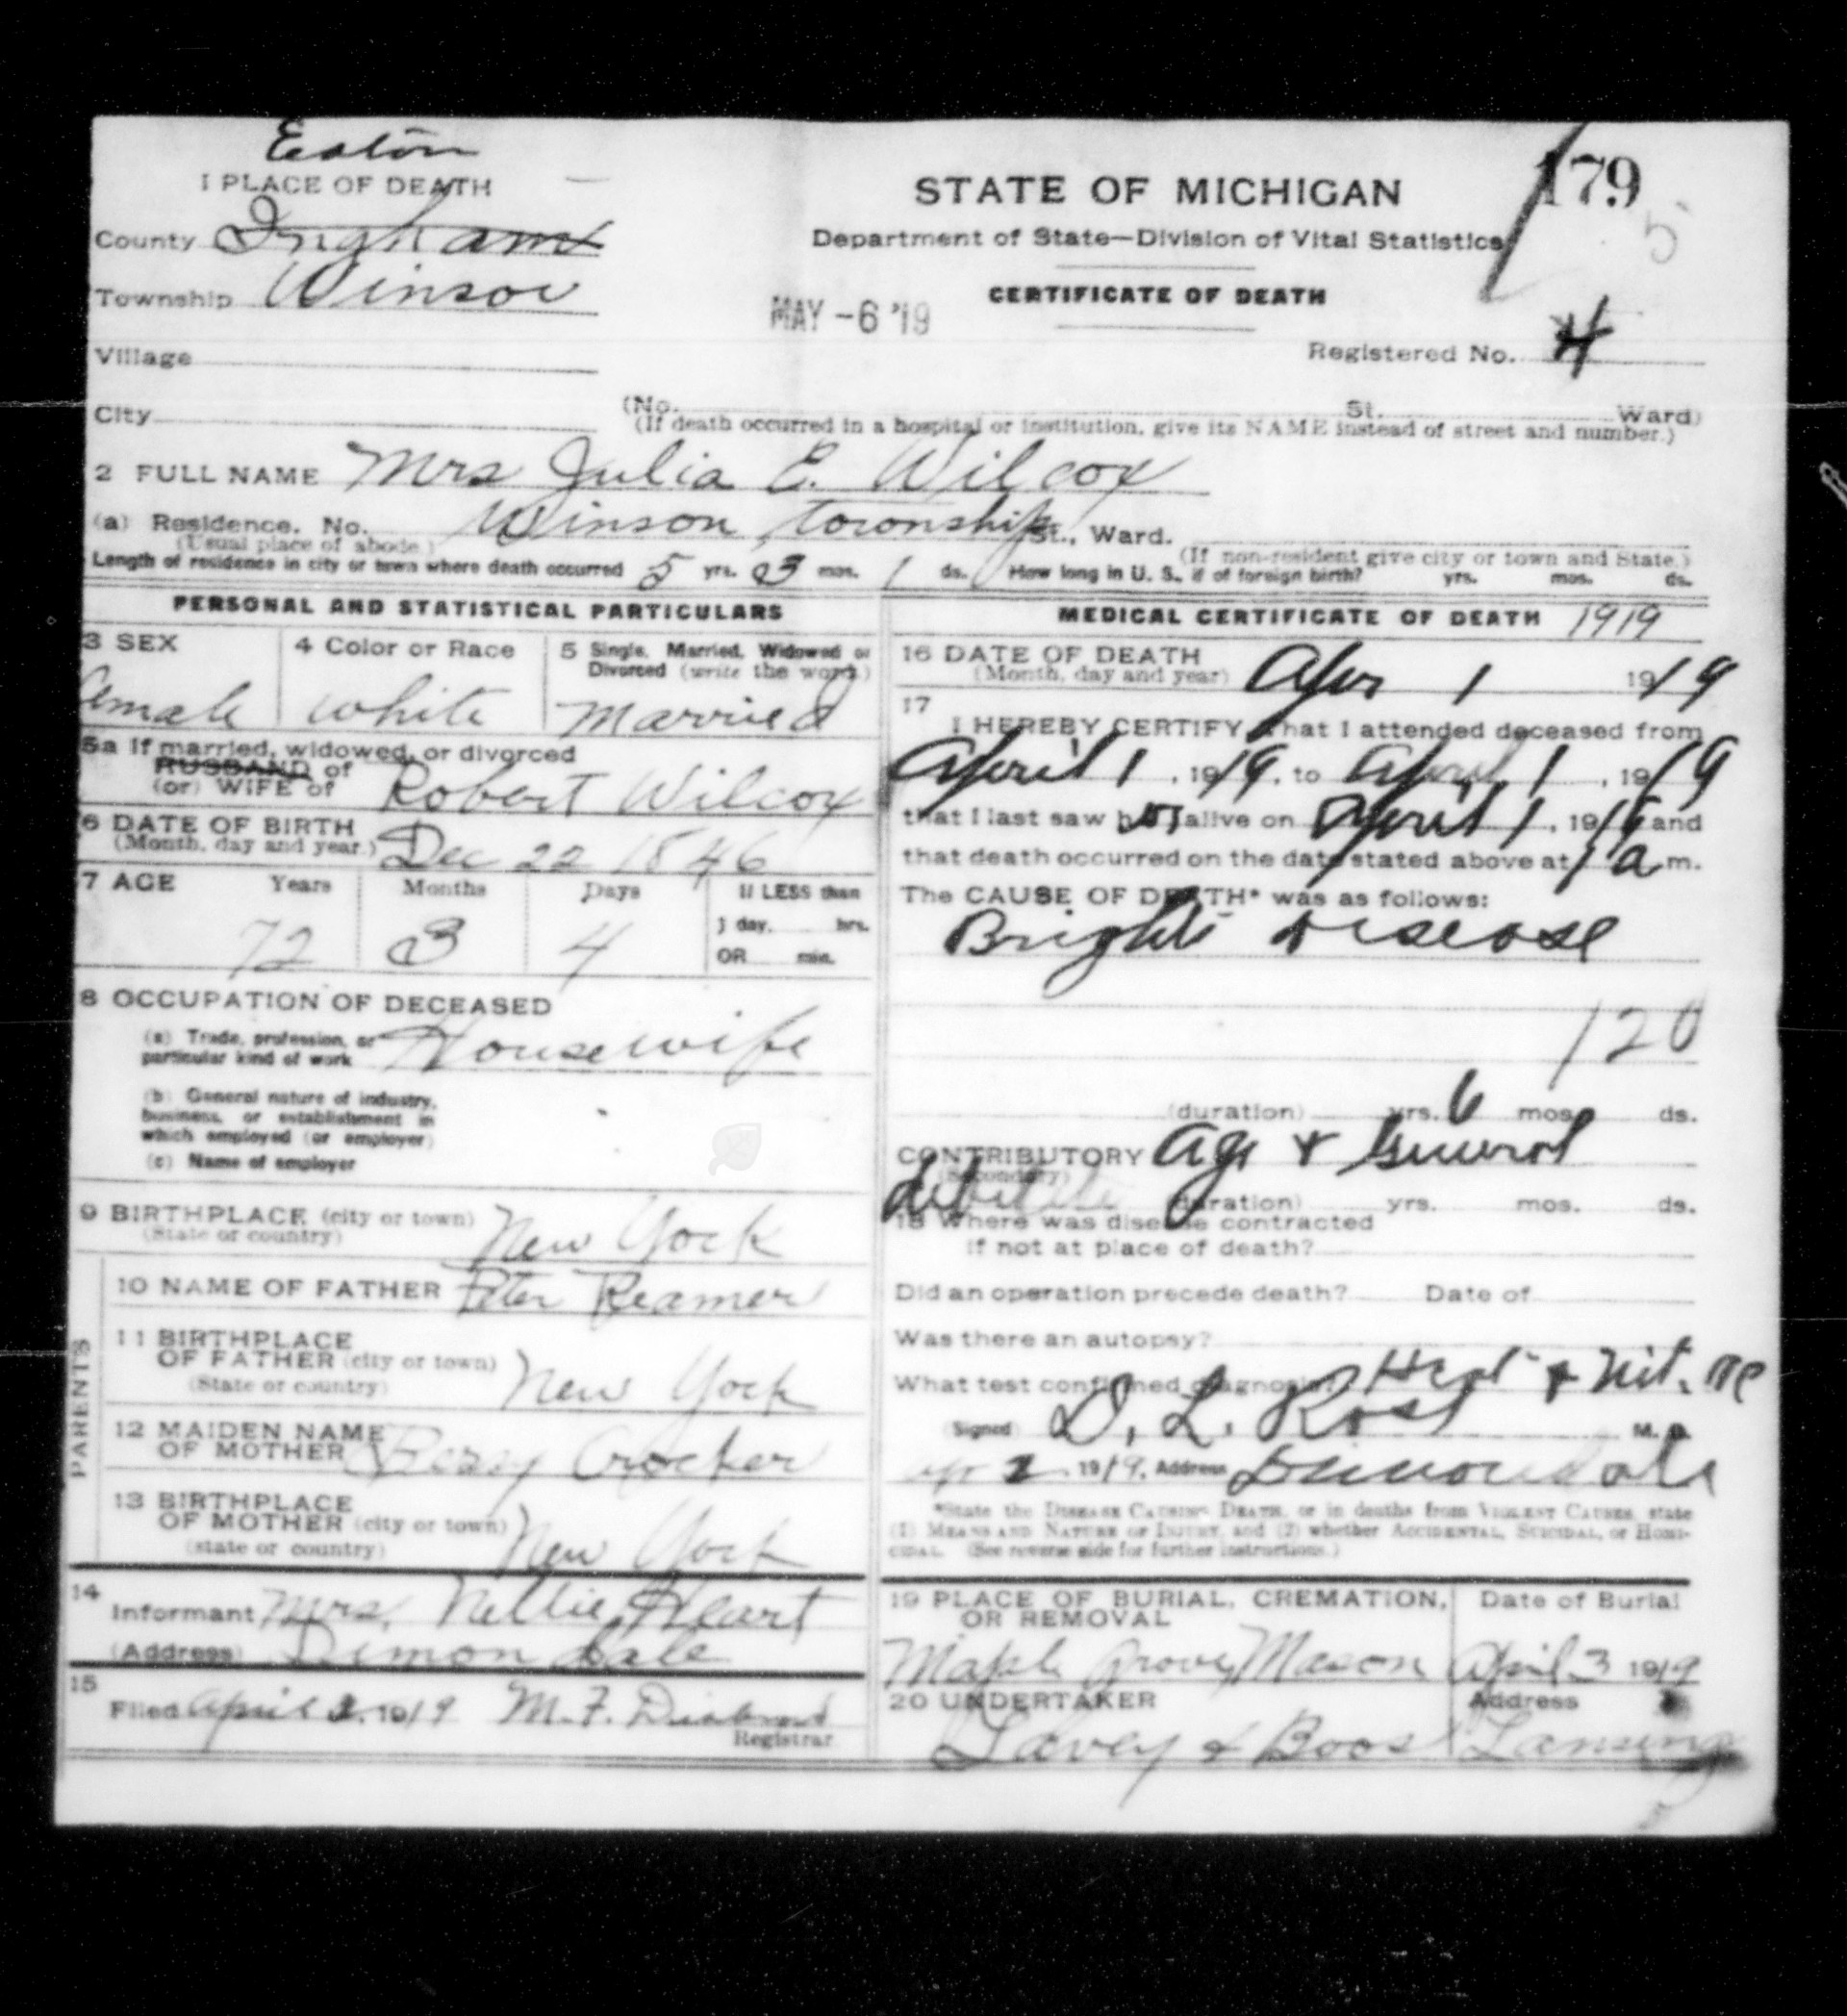 Eaton
1 PLACE OF DEATH
County Ingham
Township Winsor
Village
City
179
5
STATE OF MICHIGAN
Department of State—Division of Vital Statistics
CERTIFICATE OF DEATH
MAY -6 '19
Registered No. 4
(No. St. Ward)
(If death occurred in a hospital or institution, give its NAME instead of street and number.)
2 FULL NAME Mrs Julia E. Wilcox
(a) Residence. No. Winson township St., Ward.
(Usual place of abode.) (If non-resident give city or town and State.)
Length of residence in city or town where death occurred 5 yrs. 3 mos. 1 ds. How long in U. S., if of foreign birth? yrs. mos. ds.
PERSONAL AND STATISTICAL PARTICULARS
3 SEX 4 Color or Race 5 Single, Married, Widowed or
Divorced (write the word.)
emale white Married
5a If married, widowed, or divorced
HUSBAND of
(or) WIFE of Robert Wilcox
6 DATE OF BIRTH
(Month, day and year.) Dec 22 1846
7 AGE Years Months Days If LESS than
1 day. hrs.
OR min.
72 3 4
8 OCCUPATION OF DECEASED
(a) Trade, profession, or
particular kind of work Housewife
(b) General nature of industry,
business, or establishment in
which employed (or employer)
(c) Name of employer
9 BIRTHPLACE (city or town)
(State or country) New York
PARENTS
10 NAME OF FATHER Peter Reamer
11 BIRTHPLACE
OF FATHER (city or town)
(State or country) New York
12 MAIDEN NAME
OF MOTHER Crocker
13 BIRTHPLACE
OF MOTHER (city or town)
(state or country) New York
14
Informant Mrs. Nellie Heart
(Address) Dimondale
15
Filed April 2, 1919 M. F.
Registrar
MEDICAL CERTIFICATE OF DEATH 1919
16 DATE OF DEATH
(Month, day and year) Apr 1 1919
17
I HEREBY CERTIFY, That I attended deceased from
April 1, 1919, to April 1, 1919
that I last saw her alive on April 1, 1919 and
that death occurred on the date stated above at 1 a m.
The CAUSE OF DEATH* was as follows:
Brights disease
120
(duration) yrs. 6 mos. ds.
CONTRIBUTORY Age & General
(Secondary)
debility (duration) yrs. mos. ds.
18 Where was disease contracted
if not at place of death?
Did an operation precede death? Date of
Was there an autopsy?
What test confirmed diagnosis?
Signed D. L. Ross M. D.
Apr 2 1919, Address Dimondale
*State the DISEASE CAUSING DEATH, or in deaths from VIOLENT CAUSES, state
(1) MEANS AND NATURE OF INJURY, and (2) whether ACCIDENTAL, SUICIDAL, or HOMI-
CIDAL. (See reverse side for further instructions.)
19 PLACE OF BURIAL, CREMATION,
OR REMOVAL
Date of Burial
Maple Grove, Mason April 3 1919
20 UNDERTAKER Address
Lavey & Boos Lansing